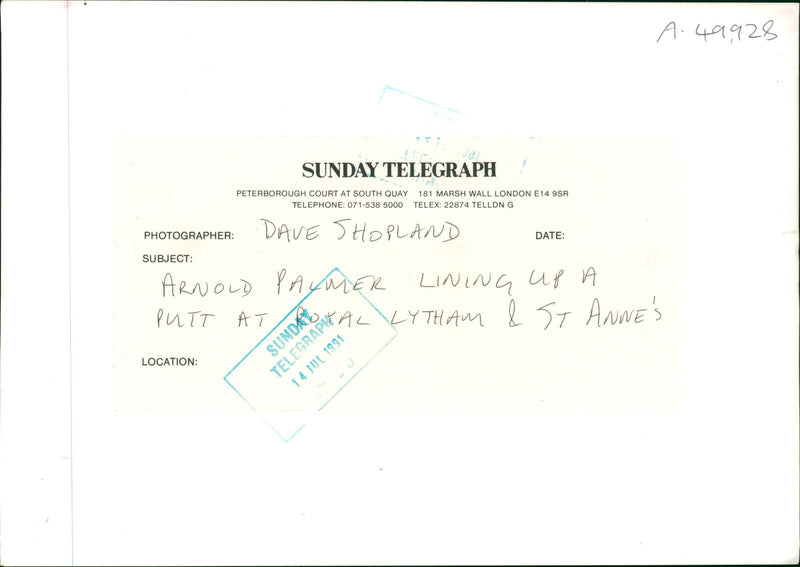 A. 49,928
SUNDAY TELEGRAPH
PETERBOROUGH COURT AT SOUTH QUAY 181 MARSH WALL LONDON E14 9SR
TELEPHONE: 071-538 5000 TELEX: 22874 TELLDN G
PHOTOGRAPHER: DAVE SHOPLAND DATE:
SUBJECT:
ARNOLD PALMER LINING UP A
PUTT AT ROYAL LYTHAM & ST ANNE'S
SUNDAY
TELEGRAPH
14 JUL 1991
LOCATION: